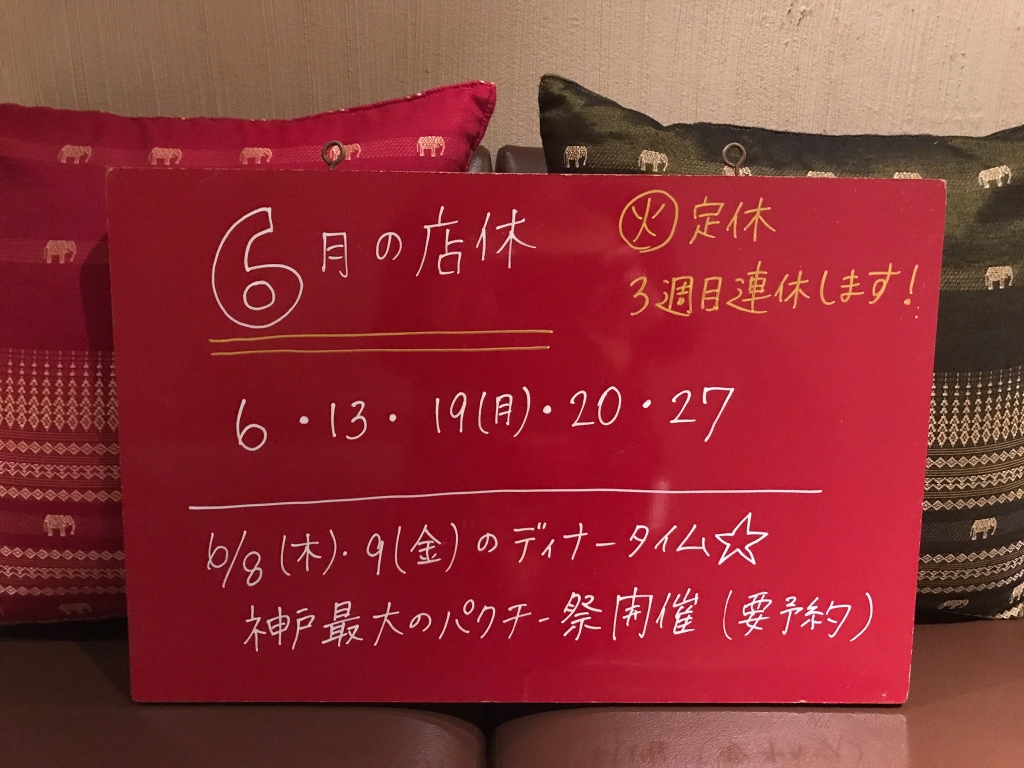 6月の店休
㊋定休
3週目連休します!
6・13・19(月)・20・27
6/8(木)・9(金)のディナータイム☆
神戸最大のパクチー祭開催(要予約)